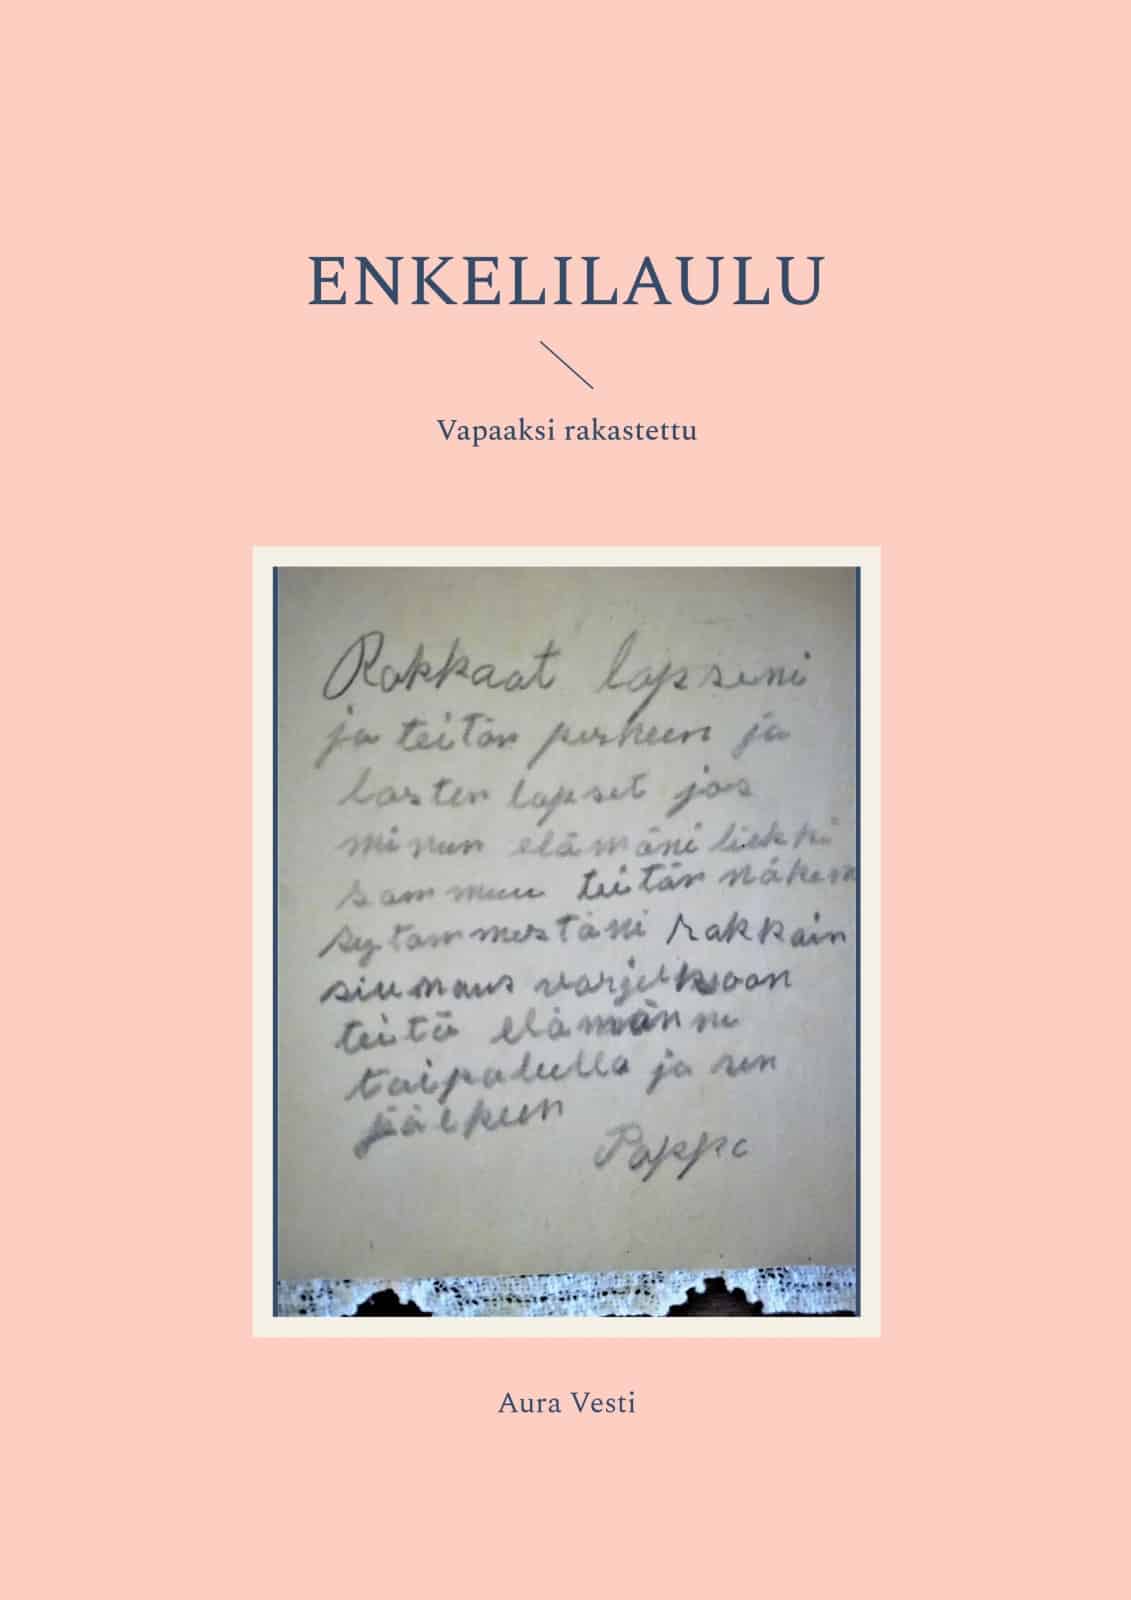 ENKELILAULU
Vapaaksi rakastettu
Rakkaat lapseni
ja teitän perheen ja
lasten lapset jos
minun elämäni liekki
sammuu teitän näkem
sytammestäni rakkain
siunaus varjelkoon
teitä elämänne
taipaleella ja sen
jälkeen
Pappa
Aura Vesti